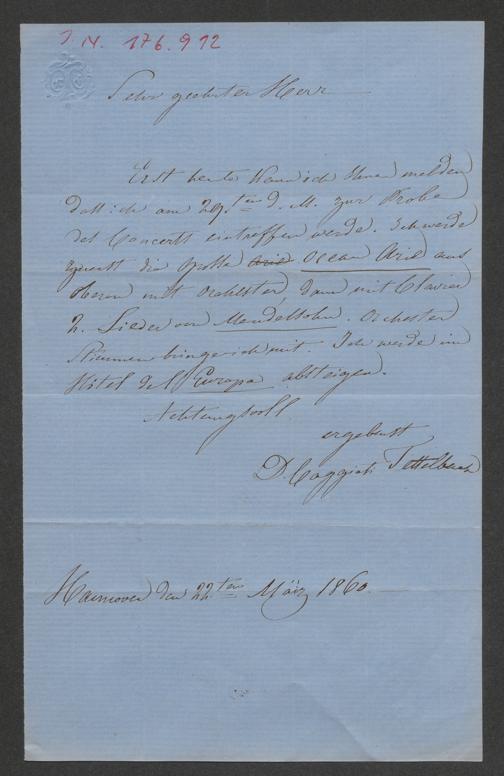 J. N. 176.912
Sehr geehrter Herr
Erst heute kann ich Ihnen melden
daß ich am 29.ten d. M. zur Probe
des Concerts eintreffen werde. Ich werde
zuerst die große Arie Ocean Arie aus
Oberon mit Orchester, dann mit Clavier
2. Lieder von Mendelsohn. Orchester
Stimmen bringe ich mit. Ich werde im
Hôtel de l'Europa absteigen.
Achtungsvoll
ergebenst
D. Tettelbach
Hannover den 22.ten März 1860.